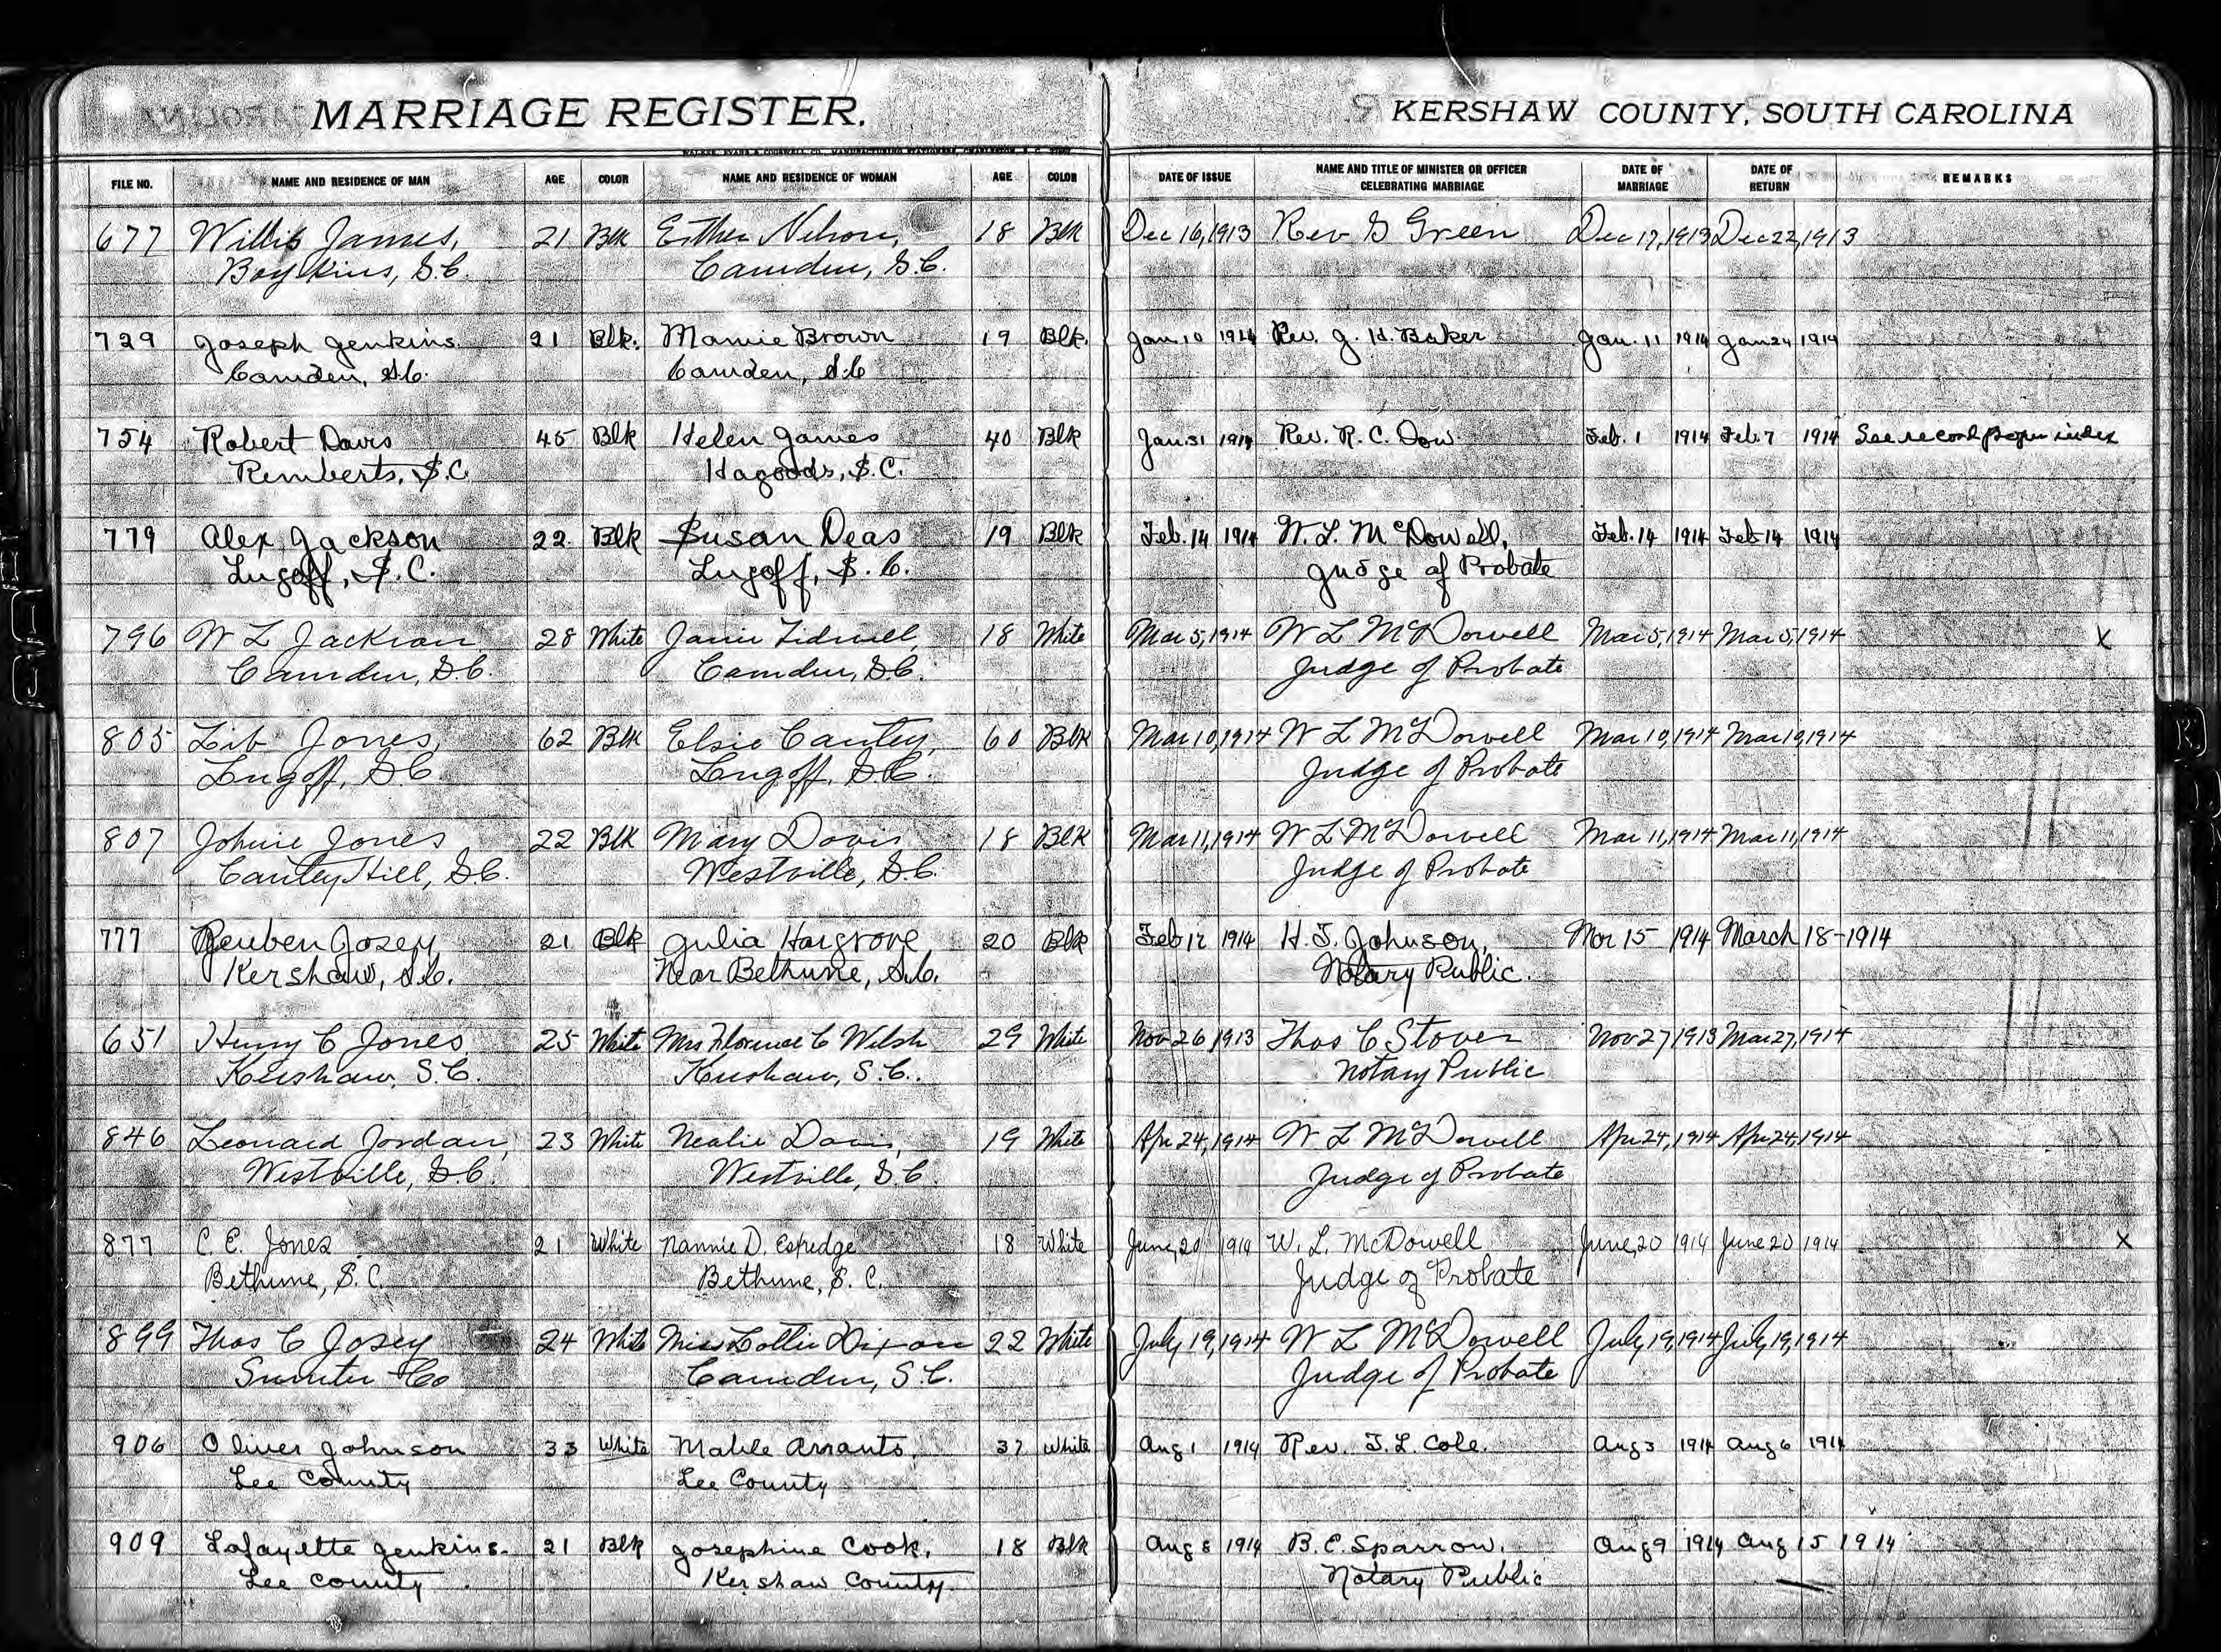 MARRIAGE REGISTER.
KERSHAW COUNTY, SOUTH CAROLINA
WALKER, EVANS & COGSWELL CO., MANUFACTURING STATIONERS, CHARLESTON, S. C.
FILE NO. NAME AND RESIDENCE OF MAN AGE COLOR NAME AND RESIDENCE OF WOMAN AGE COLOR DATE OF ISSUE NAME AND TITLE OF MINISTER OR OFFICER CELEBRATING MARRIAGE DATE OF MARRIAGE DATE OF RETURN REMARKS
677 Willis James, 21 Blk Esther Nelson, 18 Blk Dec 16, 1913 Rev G Green Dec 17, 1913 Dec 22, 1913
Boykins, S.C. Camden, S.C.
729 Joseph Jenkins 21 Blk. Mamie Brown 19 Blk. Jan. 10 1914 Rev. J. H. Baker Jan. 11 1914 Jan 24 1914
Camden, S.C. Camden, S.C
754 Robert Davis 45 Blk Helen James 40 Blk Jan 31 1914 Rev. R. C. Dow. Feb. 1 1914 Feb. 7 1914 See record proper index
Remberts, S.C Hagoods, S.C.
779 Alex Jackson 22 Blk Susan Deas 19 Blk Feb. 14 1914 W. L. McDowell, Feb. 14 1914 Feb 14 1914
Lugoff, S.C. Lugoff, S.C. Judge of Probate
796 W L Jackson 28 White Janie Tidwell, 18 White Mar 5, 1914 W L McDowell Mar 5, 1914 Mar 5, 1914 X
Camden, S.C. Camden, S.C. Judge of Probate
805 Lib Jones, 62 Blk Elsie Cantey, 60 Blk Mar 10, 1914 W L McDowell Mar 10, 1914 Mar 10, 1914
Lugoff, S.C. Lugoff, S.C. Judge of Probate
807 Johnie Jones 22 Blk Mary Davis 18 Blk Mar 11, 1914 W L McDowell Mar 11, 1914 Mar 11, 1914
Cantey Hill, S.C. Westville, S.C. Judge of Probate
777 Reuben Josey 21 Blk Julia Hargrove 20 Blk Feb 12 1914 H. J. Johnson, Mar 15 1914 March 18-1914
Kershaw, S.C. Near Bethune, S.C. Notary Public.
651 Henry C Jones 25 White Mrs Florence C Welsh 29 White Nov 26 1913 Thos C Stover Nov 27 1913 Mar 27, 1914
Kershaw, S.C. Kershaw, S.C. Notary Public
846 Leonard Jordan, 23 White Nealie Davis, 19 White Apr 24, 1914 W L McDowell Apr 24, 1914 Apr 24, 1914
Westville, S.C. Westville, S.C. Judge of Probate
877 C. E. Jones 21 White Nannie D. Espedge 18 White June, 20 1914 W. L. McDowell June, 20 1914 June 20 1914 X
Bethune, S.C. Bethune, S. C. Judge of Probate
899 Thos C Josey 24 White Miss Lottie Dixon 22 White July 19, 1914 W L McDowell July 19, 1914 July 19, 1914
Sumter Co Camden, S.C. Judge of Probate
906 Oliver Johnson 33 White Mable Arrants. 37 White Aug 1 1914 Rev. J. L. Cole. Aug 3 1914 Aug 6 1914
Lee County Lee County
909 Lafayette Jenkins. 21 Blk Josephine Cook. 18 Blk Aug 8 1914 B. E. Sparrow. Aug 9 1914 Aug 15 1914
Lee County Kershaw County. Notary Public